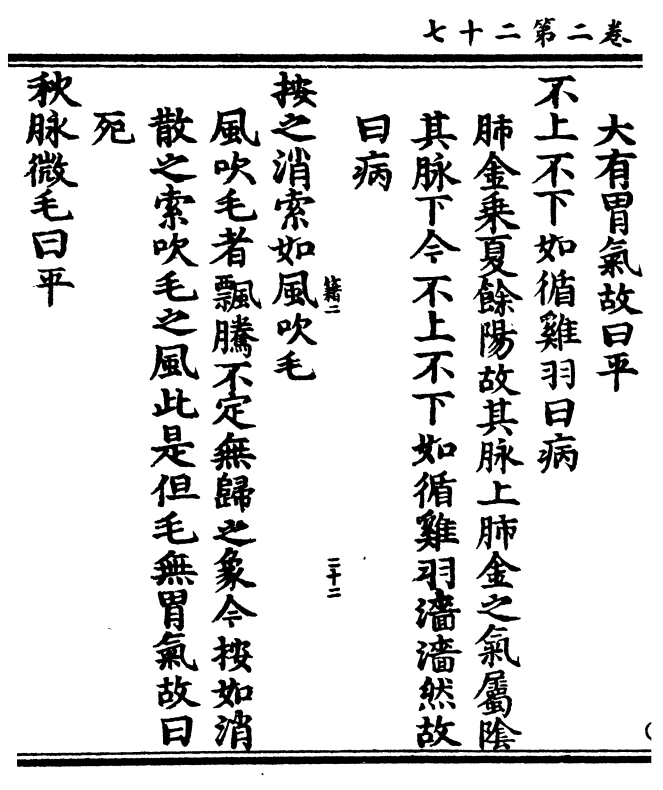 卷二第二十七
大有胃氣故曰平
不上不下如循雞羽曰病
肺金乗夏餘陽故其脉上肺金之氣屬陰
其脉下今不上不下如循雞羽濇濇然故
曰病
籍二
二十二
按之消索如風吹毛
風吹毛者飄騰不定無歸之象今按如消
散之索吹毛之風此是但毛無胃氣故曰
死
秋脉微毛曰平